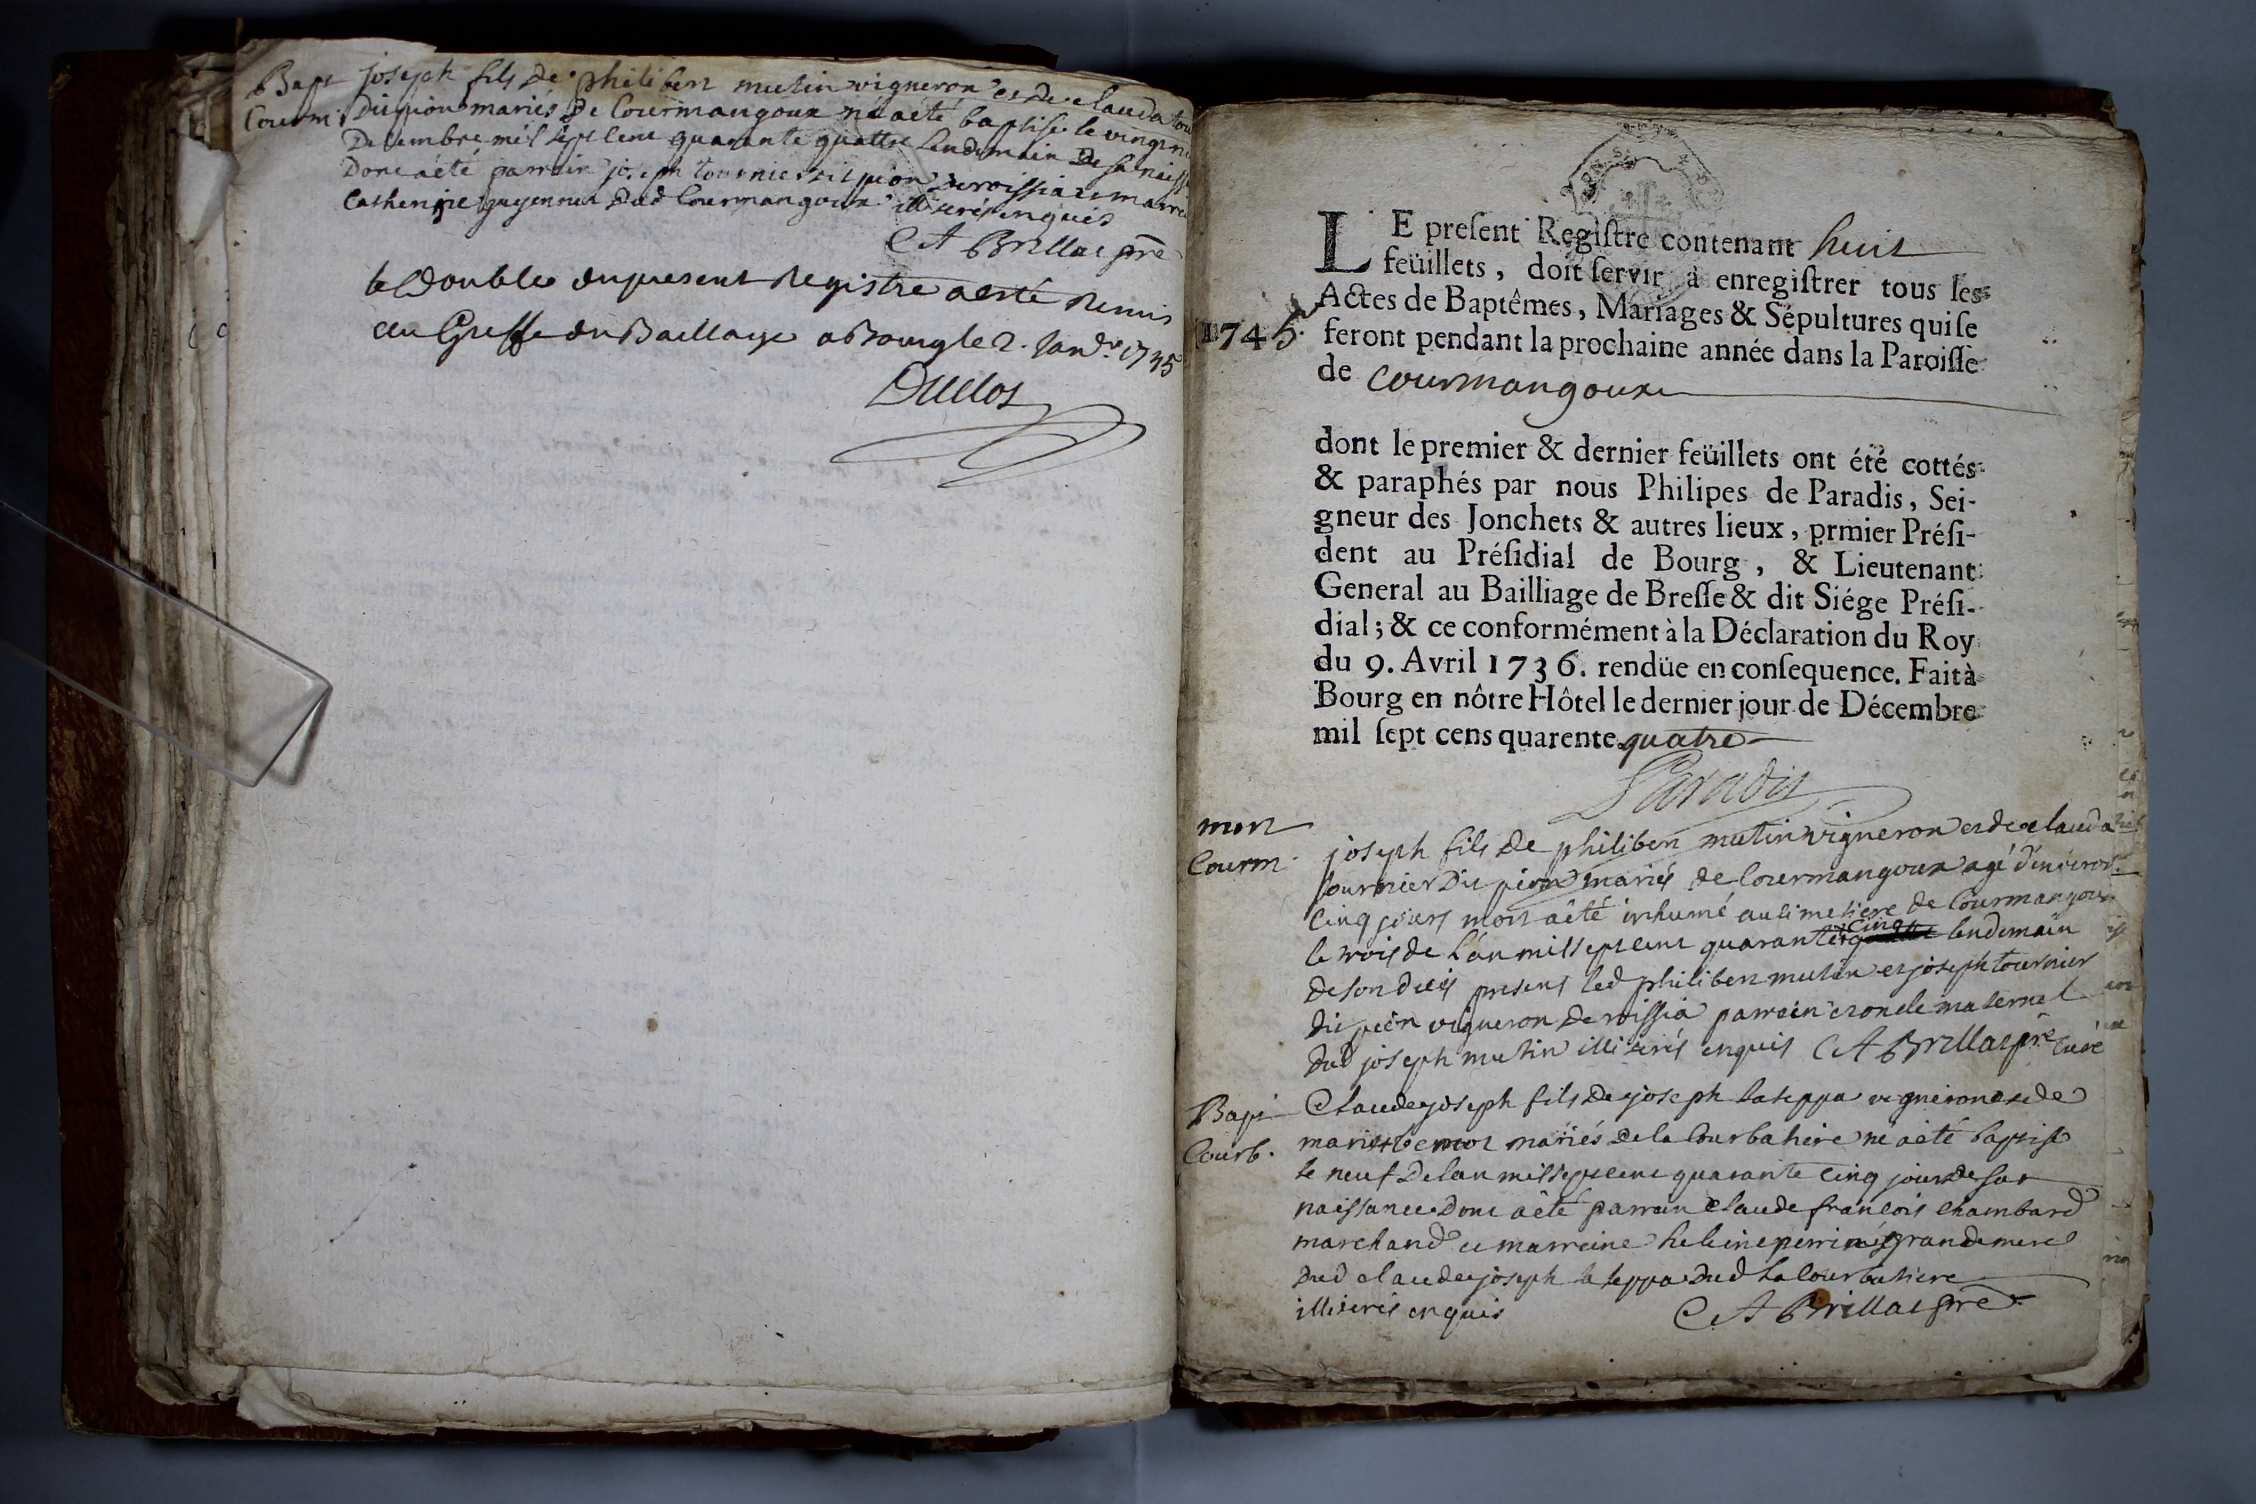 Bapt joseph fils de philibert mutin vigneron et de clauda
Courm. Dit pion mariés de Courmangoux né a été baptisé le vingt
Decembre mil sept cent quarante quattre lendemain de sa
Dont a été parrain joseph tournier dit pion de roissia et
Catherine Dud Courmangoux illiterés enquis
C A Brillat pre
le double du present Registre a esté Remis
au Greffe du Baillage a Bourg le 2. Janvr 1745
Duclos
LE preſent Regiſtre contenant huit
feüillets, doit ſervir à enregiſtrer tous les
Actes de Baptêmes, Mariages & Sépultures qui ſe
1745. feront pendant la prochaine année dans la Paroiſſe
de Courmangoux
dont le premier & dernier feüillets ont été cottés
& paraphés par nous Philipes de Paradis, Sei-
gneur des Jonchets & autres lieux, prmier Préſi-
dent au Préſidial de Bourg, & Lieutenant
General au Bailliage de Breſſe & dit Siége Préſi-
dial; & ce conformément à la Déclaration du Roy
du 9. Avril 1736. rendüe en conſequence. Fait à
Bourg en nôtre Hôtel le dernier jour de Décembre
mil ſept cens quarente quatre
Paradis
mort
Courm. joseph fils de philibert mutin vigneron et de clauda
tournier Dit pion mariés de Courmangoux agé d'environ
cinq jours mort a été inhumé au simetiere de Courmangoux
le trois de l'an mil sept cent quarante cinq lendemain
de son décés present led philibert mutin et joseph tournier
dit pion vigneron de roissia parrain et oncle maternel
dud joseph mutin illiterés enquis C A Brillat pre curé
Bapt Claude joseph fils de joseph lateppa vigneron et de
Courb. marie mariés de la Courbatiere né a été baptisé
le neuf de l'an mil sept cent quarante cinq jour de sa
naissance Dont a été parrain Claude françois Chambard
marchand et marreine heleine perrin grandemere
dud claude joseph la teppa dud la Courbatiere
illiterés enquis C A Brillat pre